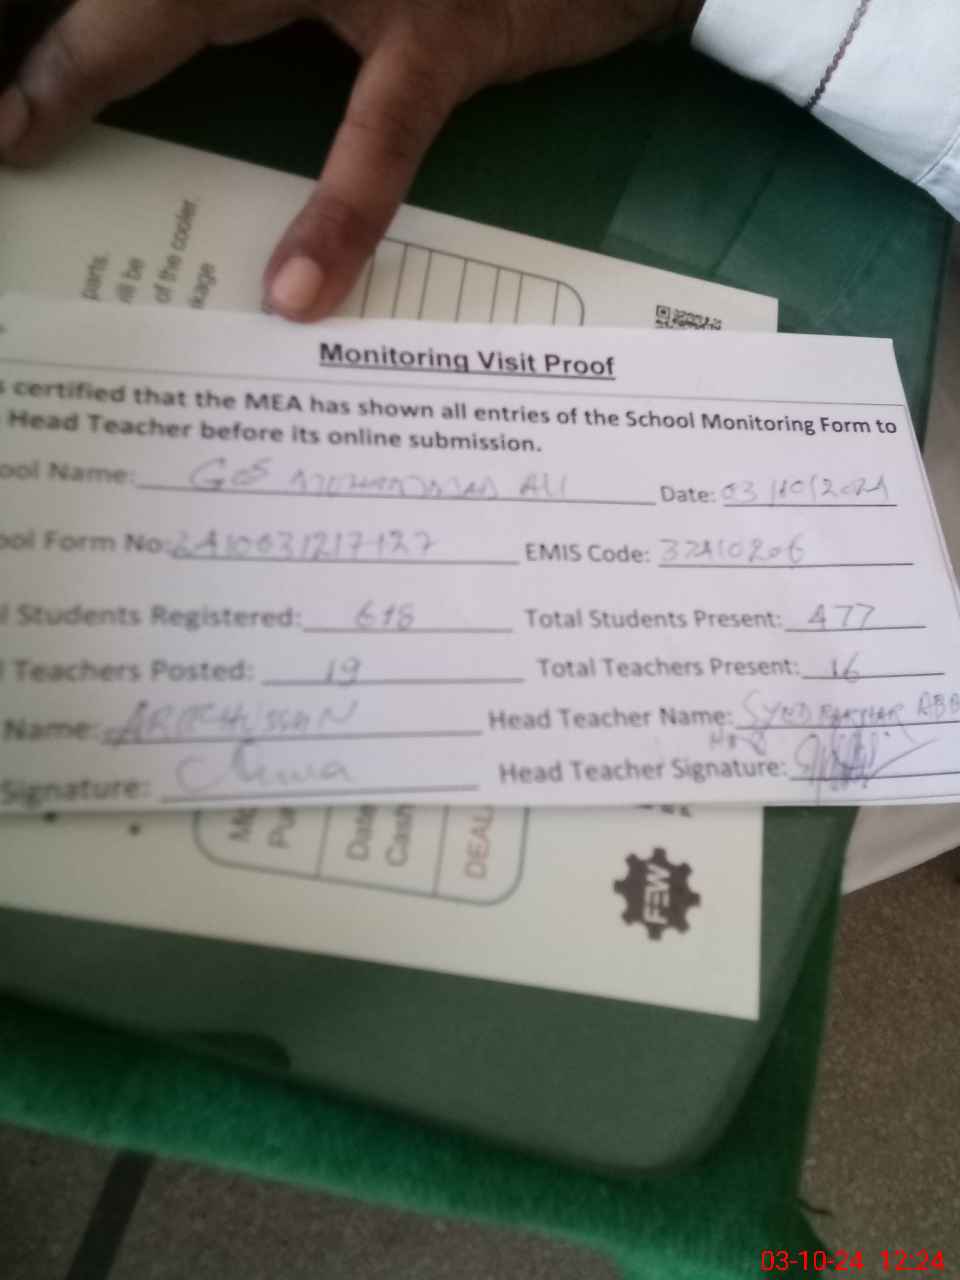 parts.
ill be
of the cooler.
kage
Monitoring Visit Proof
s certified that the MEA has shown all entries of the School Monitoring Form to
Head Teacher before its online submission.
ool Name: ALI Date: 03/10/2024
ool Form No: EMIS Code:
l Students Registered: 618 Total Students Present: 477
l Teachers Posted: 19 Total Teachers Present: 16
Name: Head Teacher Name: SYED
Signature: Head Teacher Signature:
Date
Cash
DEAL
FEW
03-10-24 12:24